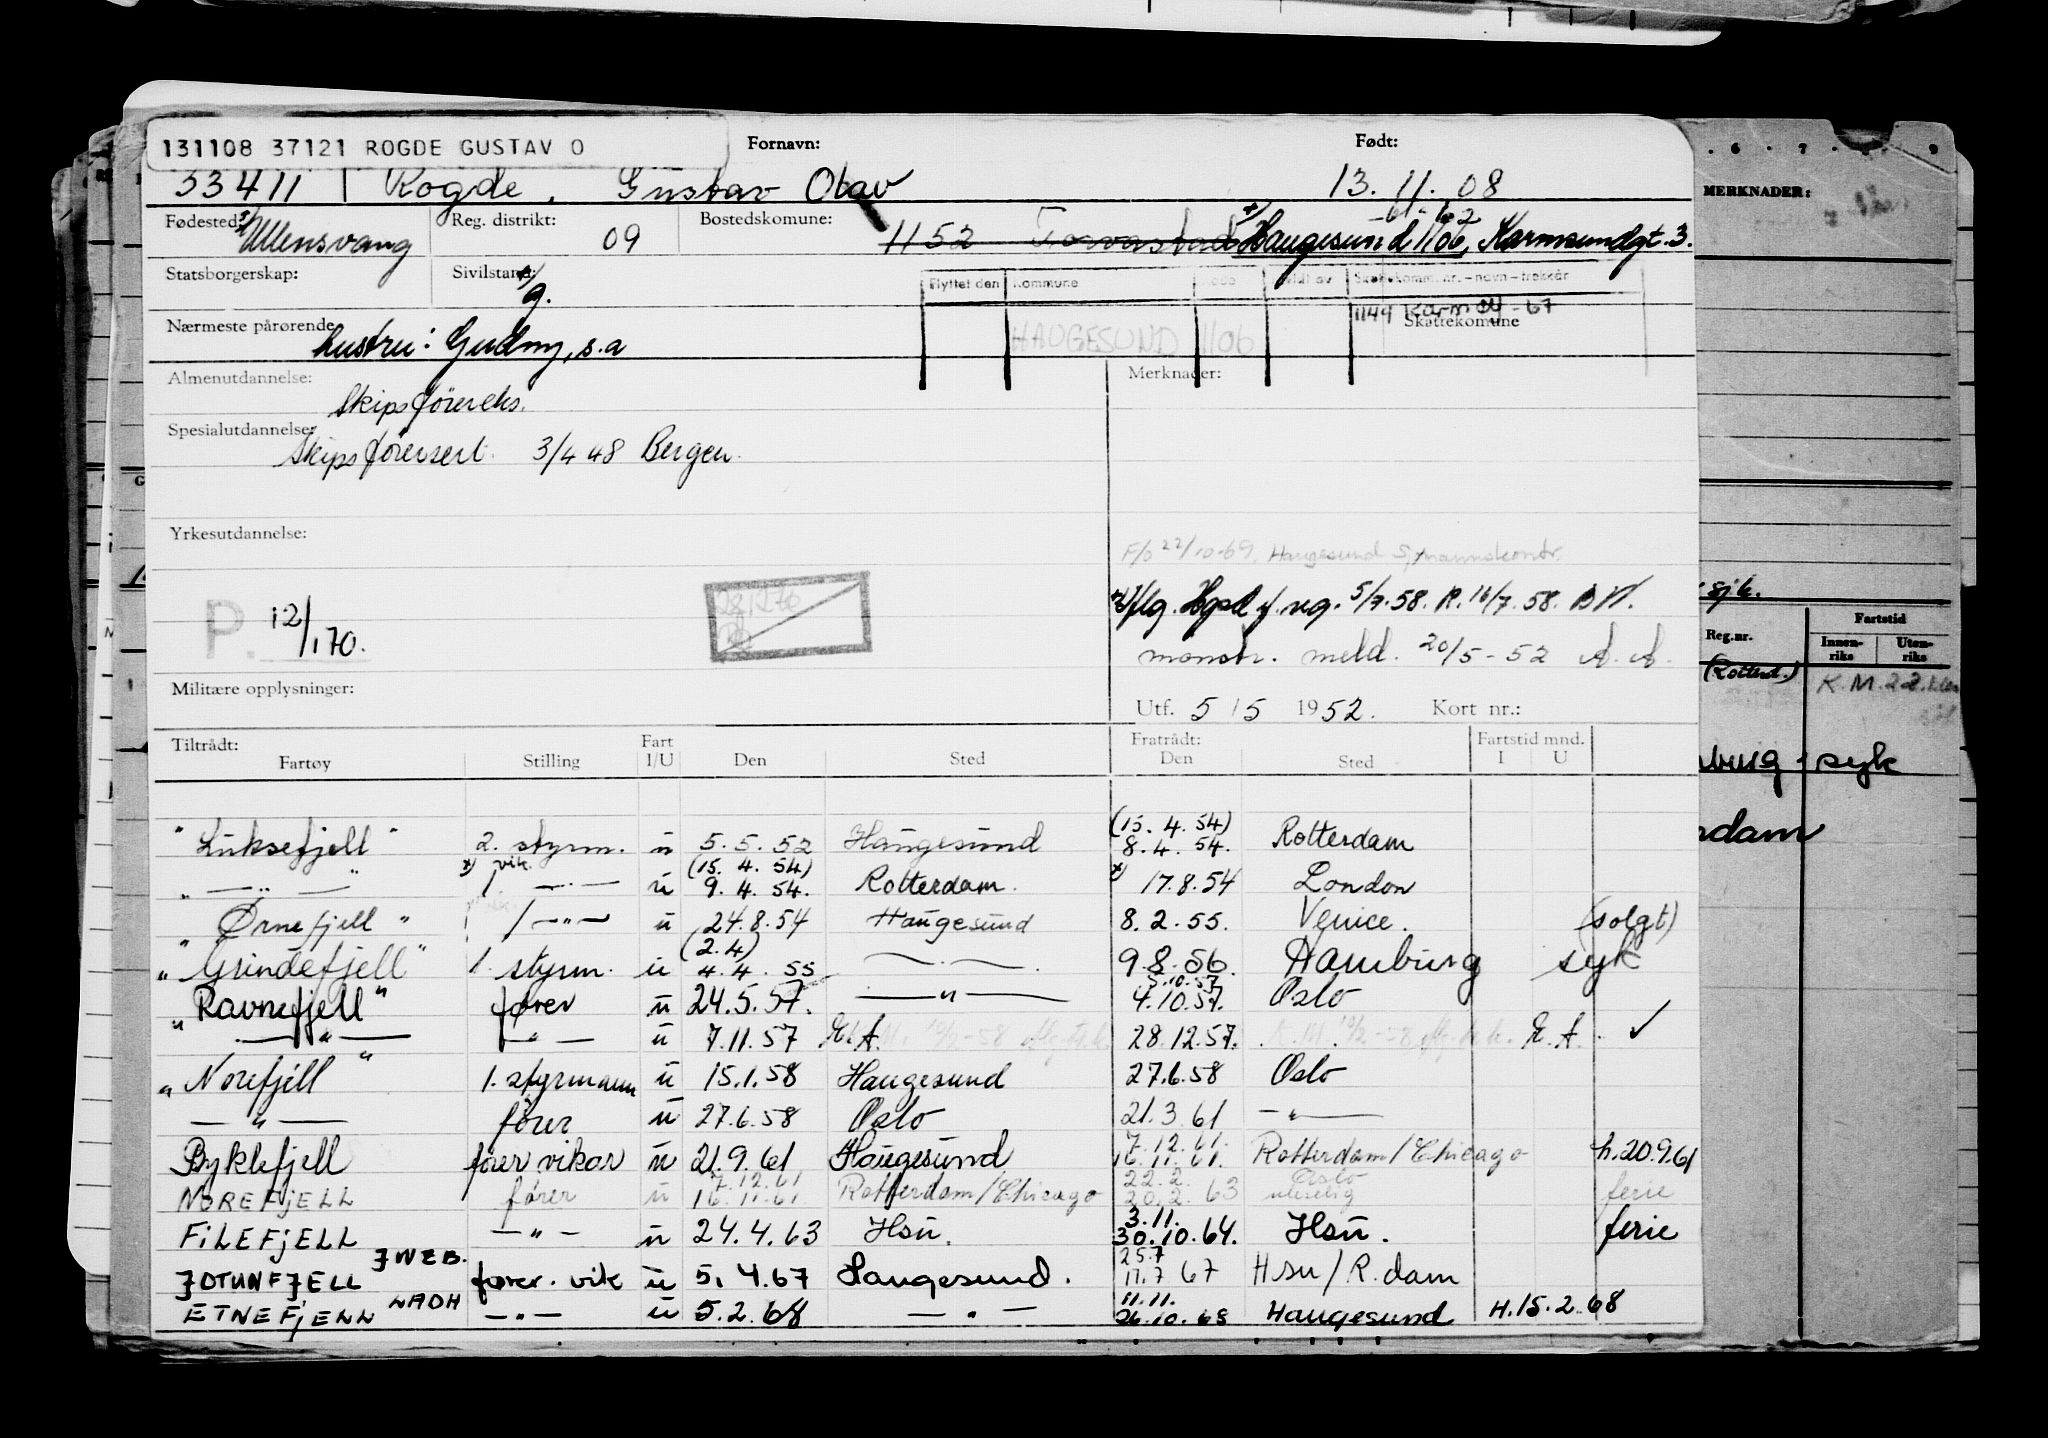 131108 37121 ROGDE GUSTAV O
Fornavn: Født:
53411 Rogde, Gustav Olav 13.11.08
Fødested: Ullensvang Reg. distrikt: 09 Bostedskomune: 1152 Torvastad Haugesund 1106, Karmsundgt. 3.
Statsborgerskap: Sivilstand: g.
Flyttet den Kommune Skattekomm. nr. - navn - trekkår
HAUGESUND 1106 1149 Karmøy - 67
Skattekomune
Nærmeste pårørende hustru: Gudny, s.a
Almenutdannelse: Skipsførereks. Merknader:
Spesialutdannelse: Skipsførersert. 3/4 48 Bergen.
Yrkesutdannelse:
F/o 22/10-69, Haugesund Sjømannskontr.
flg. Hgsd f. reg. 5/7.58. R. 16/7.58.
P. 12/1 70.
mønstr. meld. 20/5-52 A. A.
Militære opplysninger:
Utf. 5/5 1952. Kort nr.:
Tiltrådt: Fart Fratrådt: Fartstid mnd.
Fartøy Stilling I/U Den Sted Den Sted I U
"Luksefjell" 2. styrm. u 5.5.52 Haugesund (15.4.54) 8.4.54. Rotterdam
— " — x) vik. 1. — " — u (15.4.54) 9.4.54. Rotterdam. x) 17.8.54 London
"Ørnefjell" 1 — " — u 24.8.54 Haugesund 8.2.55. Venice. (solgt)
"Grindefjell" 1. styrm. u (2.4) 4.4.55 — " — 9.8.56. Hamburg syk
"Ravnefjell" fører u 24.5.57. — " — 5.10.57 4.10.57. Oslo
— " — — " — u 7.11.57 E. A. 28.12.57. E. A. ✓
"Norefjell" 1. styrmann u 15.1.58 Haugesund 27.6.58 Oslo
— " — fører u 27.6.58 Oslo 21.3.61 — " —
Byklefjell fører vikar u 21.9.61 Haugesund 7.12.61. 16.11.61. Rotterdam/Chicago h.20.9.61
NOREFJELL fører u 7.12.61 16.11.61. Rotterdam/Chicago 22.2. 20.2.63 Oslo uleselig ferie
FILEFJELL — " — u 24.4.63 Hsu. 3.11. 30.10.64. Hsu. ferie
JOTUNFJELL JWZB. fører. vik u 5.4.67 Haugesund. 25.7 11.7 67 Hsu/R.dam
ETNEFJELL LADH — " — u 5.2.68 — " — 11.11. 26.10.68 Haugesund H.15.2.68
6 7 8 9
MERKNADER:
sjk.
Reg.nr. Fartstid
Innen-riks Uten-riks
(Rotterd.) K.M.22.
syk